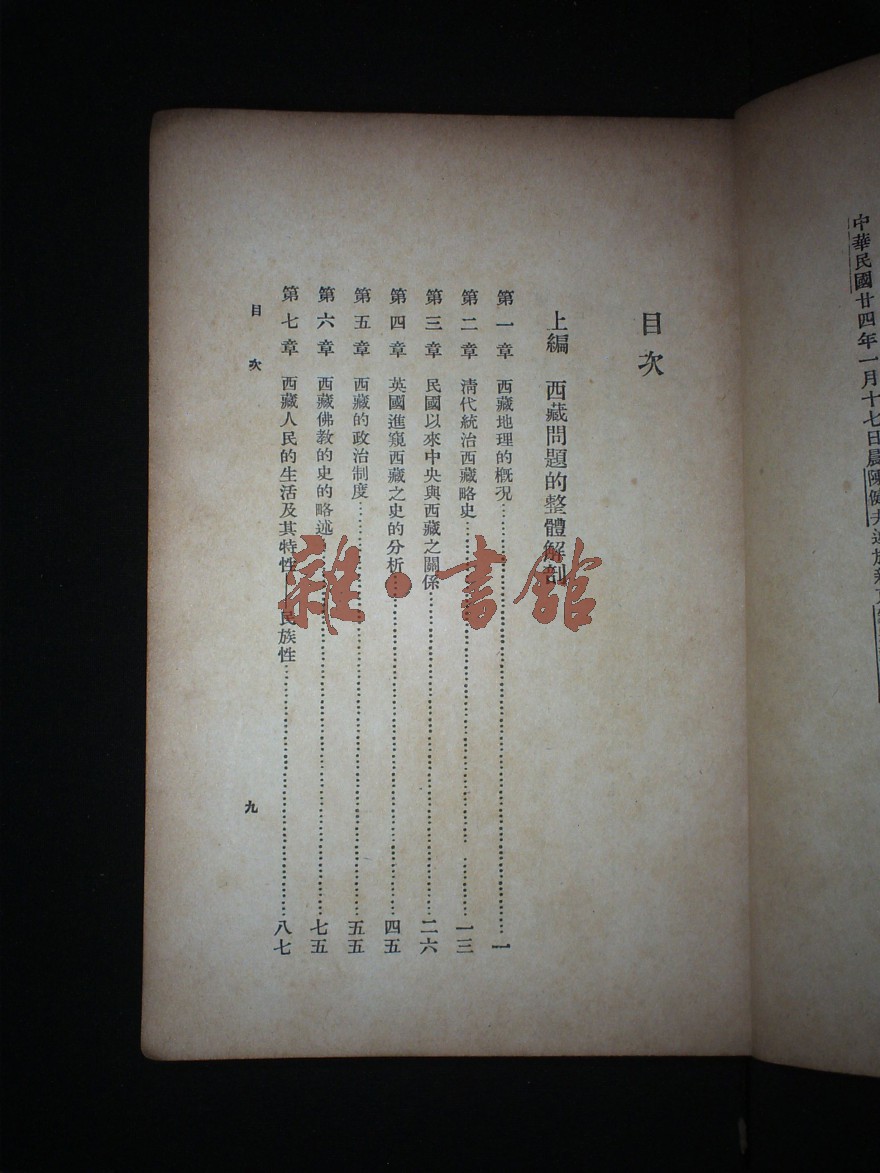 中華民國廿四年一月十七日晨陳健夫
目次
上編 西藏問題的整體解剖
第一章 西藏地理的概況……一
第二章 清代統治西藏略史……一三
第三章 民國以來中央與西藏之關係……二六
第四章 英國進窺西藏之史的分析……四五
第五章 西藏的政治制度……五五
第六章 西藏佛教的史的略述……七五
第七章 西藏人民的生活及其特性——民族性……八七
目次 九
雜·書館